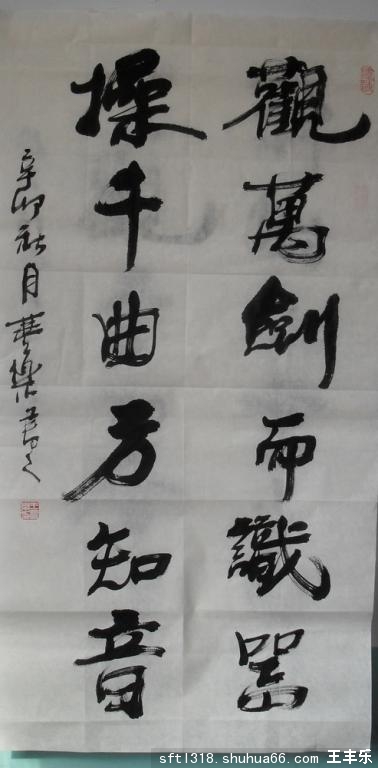 觀萬劍而識器
操千曲方知音
辛卯秋月華樂書之
sftl318.shuhua66.com 王丰乐